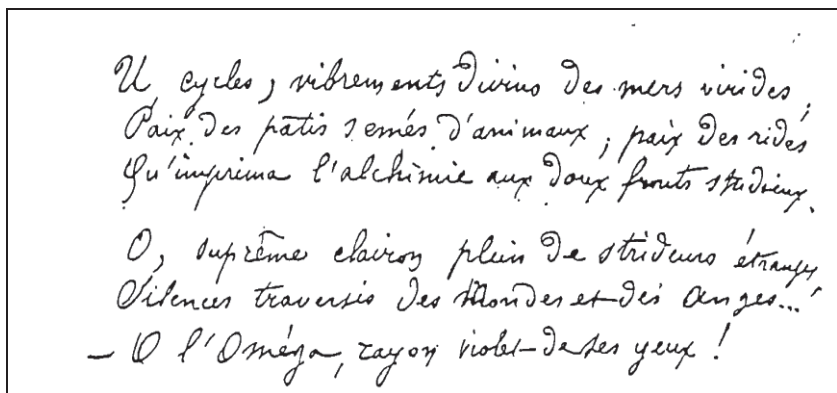 U, cycles, vibrements divins des mers virides,
Paix des pâtis semés d'animaux, paix des rides
Qu'imprima l'alchimie aux doux fronts studieux.
O, suprême clairon plein de strideurs étranges
Silences traversés des Mondes et des Anges...
– O l'Oméga, rayon violet de Ses yeux !